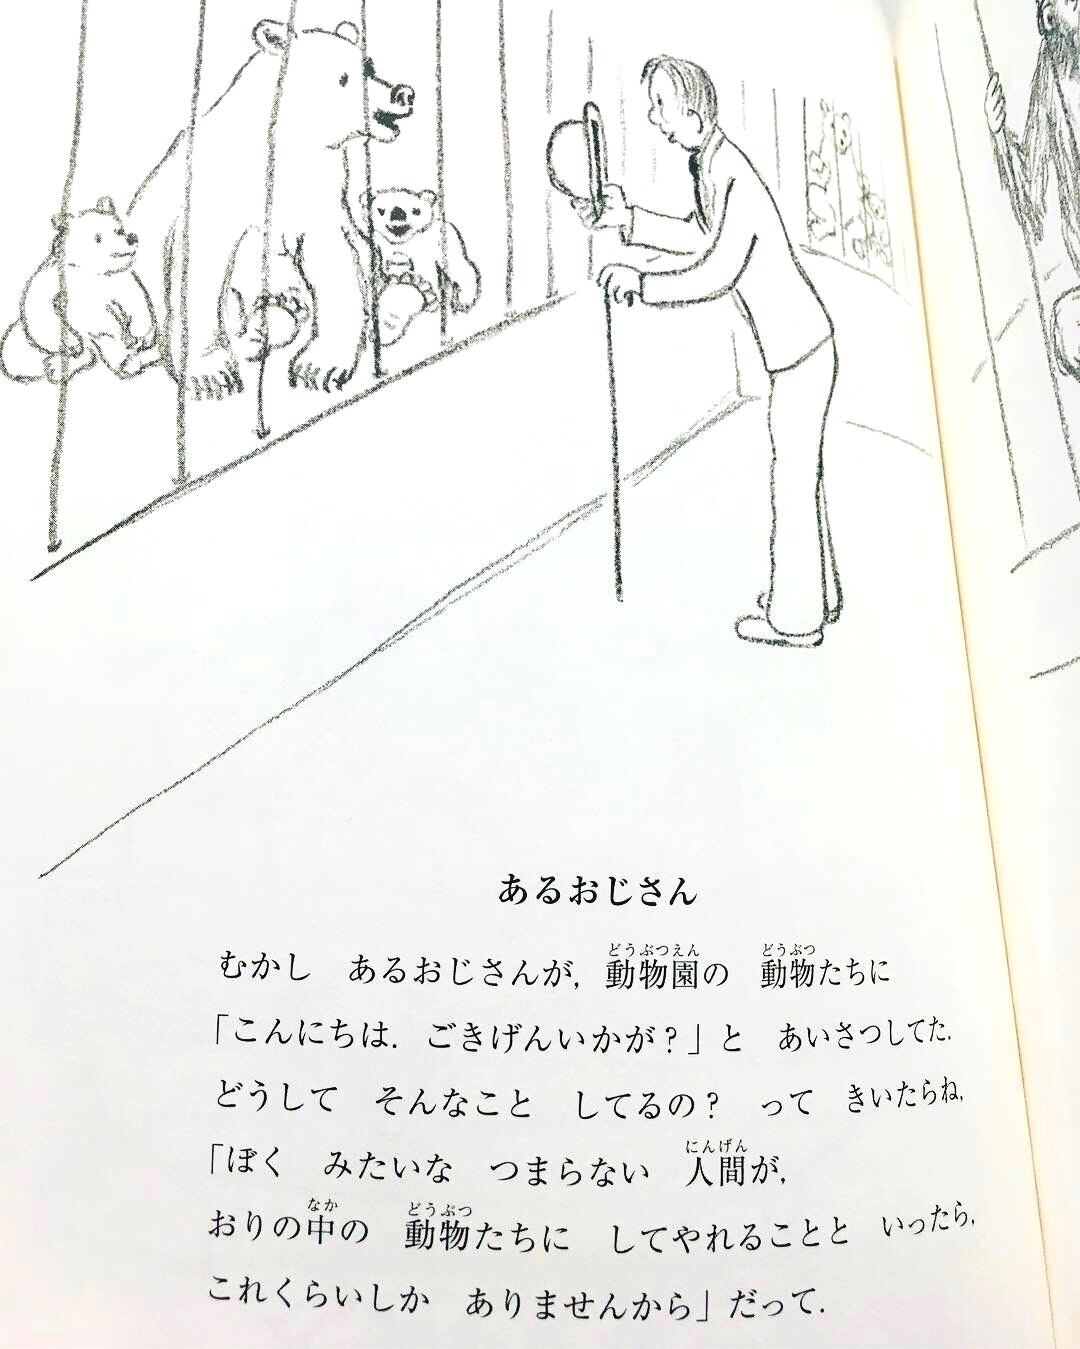 あるおじさん
むかし　あるおじさんが, 動物園の　動物たちに
「こんにちは. ごきげんいかが?」と　あいさつしてた.
どうして　そんなこと　してるの?　って　きいたらね,
「ぼく　みたいな　つまらない　人間が,
おりの中の　動物たちに　してやれることと　いったら,
これくらいしか　ありませんから」だって.